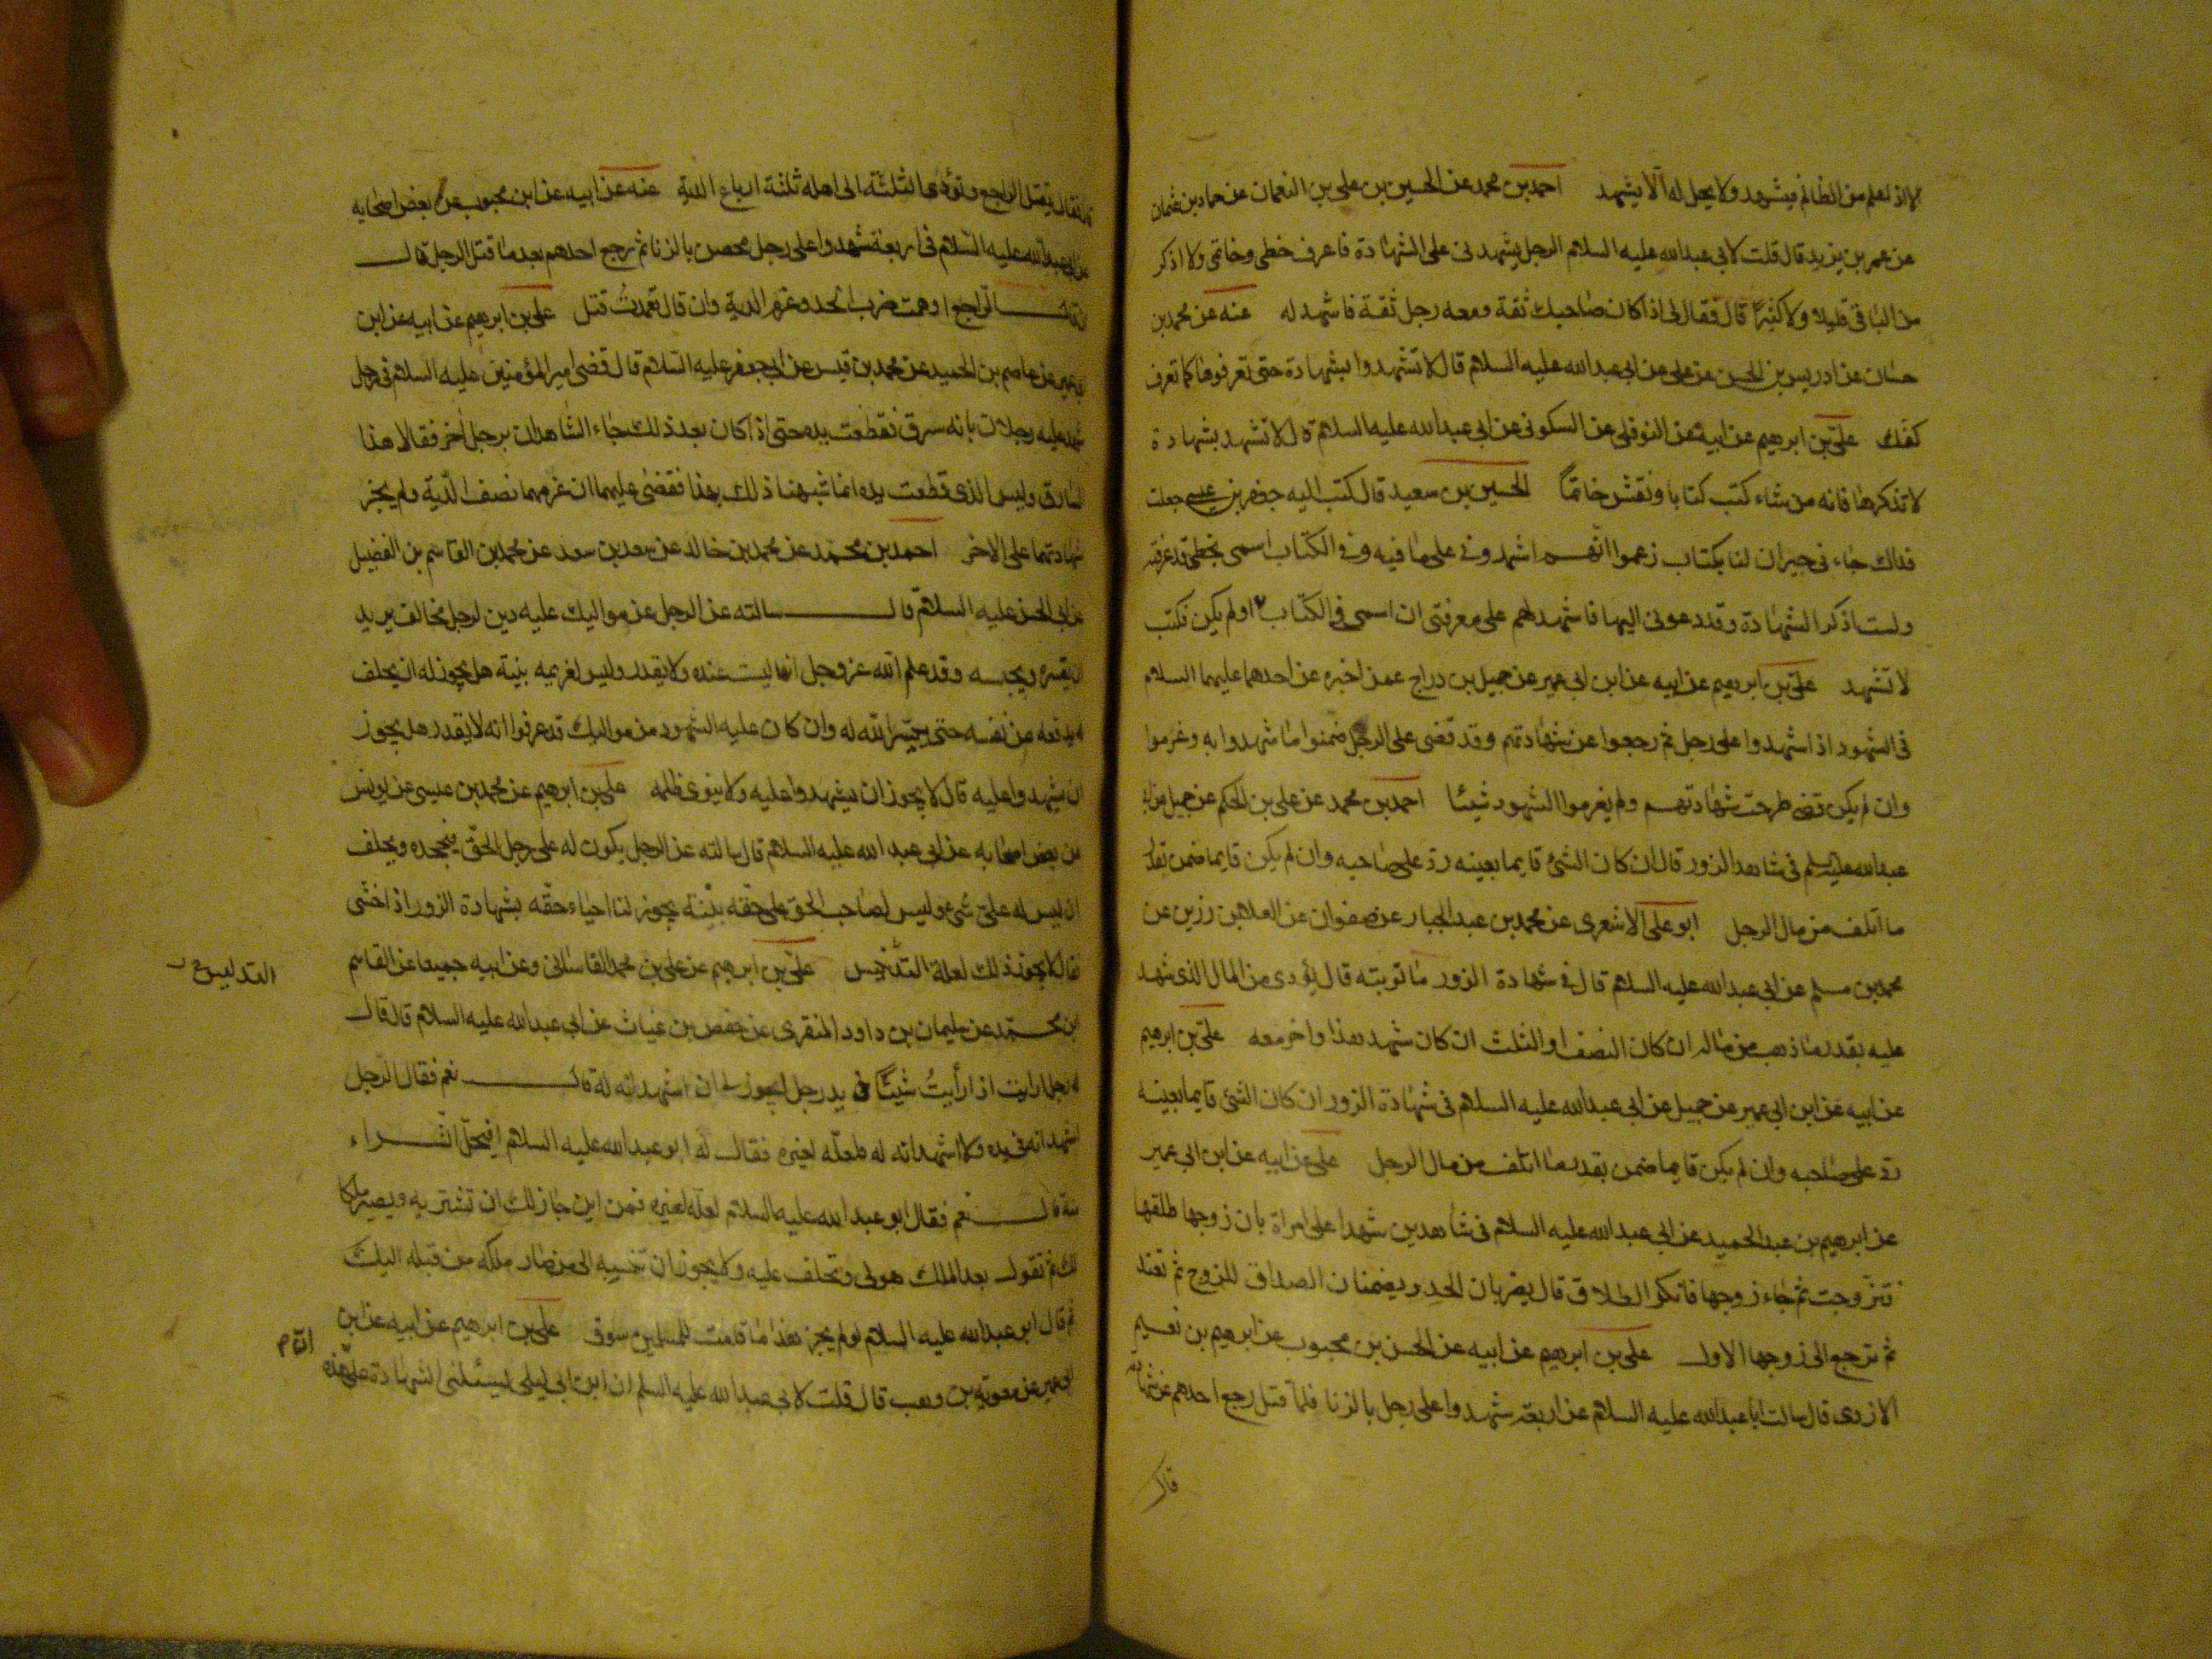 الا اذا علم من الظالم فيشهد ولا يحل له الا يشهد احمد بن محمد عن الحسين بن علي بن النعمان عن حماد بن عثمان
عن عمر بن يزيد قال قلت لابي عبدالله عليه السلام الرجل يشهدني على الشهادة فاعرف خطي وخاتمي ولا اذكر
من الباقي قليلا ولا كثيرا قال فقال لي اذا كان صاحبك ثقة ومعه رجل ثقة فاشهد له عنه عن محمد بن
حسان عن ادريس بن الحسن عن علي عن ابي عبدالله عليه السلام قال لا تشهدوا بشهادة حتى تعرفوها كما تعرف
كفك علي بن ابرهيم عن ابيه عن النوفلي عن السكوني عن ابي عبدالله عليه السلام قال لا تشهد بشهادة
لا تذكرها فانه من شاء كتب كتابا ونقش خاتما الحسين بن سعيد قال كتب اليه جعفر بن عيسى جعلت
فداك جاءني جيران لنا بكتاب زعموا انهم اشهدوني على ما فيه وفي الكتاب اسمي بخطي قد عرفته
ولست اذكر الشهادة وقد دعوني اليها فاشهد لهم على معرفتي ان اسمي في الكتاب او لم يكن فكتب
لا تشهد علي بن ابرهيم عن ابيه عن ابن ابي عمير عن جميل بن دراج عمن اخبره عن احدهما عليهما السلام
في الشهود اذا شهدوا على رجل ثم رجعوا عن شهادتهم وقد قضى على الرجل ضمنوا ما شهدوا به وغرموا
وان لم يكن قضى طرحت شهادتهم ولم يغرموا الشهود شيئا احمد بن محمد عن علي بن الحكم عن جميل عن ابي
عبدالله عليه السلم في شاهد الزور قال ان كان الشئ قايما بعينه رد على صاحبه وان لم يكن قايما ضمن بقدر
ما اتلف من مال الرجل ابو علي الاشعري عن محمد بن عبدالجبار عن صفوان عن العلا بن رزين عن
محمد بن مسلم عن ابي عبدالله عليه السلام قال في شهادة الزور ما توبته قال يؤدي من المال الذي شهد
عليه بقدر ما ذهب من ماله ان كان النصف او الثلث ان كان شهد هذا واخر معه علي بن ابرهيم
عن ابيه عن ابن ابي عمير عن جميل عن ابي عبدالله عليه السلام في شهادة الزور ان كان الشئ قايما بعينه
رد على صاحبه وان لم يكن قايما ضمن بقدر ما اتلف من مال الرجل علي عن ابيه عن ابن ابي عمير
عن ابرهيم بن عبدالحميد عن ابي عبدالله عليه السلام في شاهدين شهدا على امراة بان زوجها طلقها
فتزوجت ثم جاء زوجها فانكر الطلاق قال يضربان الحد ويضمنان الصداق للزوج ثم تعتد
ثم ترجع الى زوجها الاول علي بن ابرهيم عن ابيه عن الحسن بن محبوب عن ابرهيم بن نعيم
الازدي قال سالت ابا عبدالله عليه السلام عن اربعة شهدوا على رجل بالزنا فلما قتل رجع احدهم عن شهادته
قال
قال فقال يقتل الراجع وتؤدي الثلثة الى اهله ثلثة ارباع الدية عنه عن ابيه عن ابن محبوب عن بعض اصحابه
عن ابي عبدالله عليه السلام في اربعة شهدوا على رجل محصن بالزنا ثم رجع احدهم بعد ما قتل الرجل قال
ان قال الراجع اوهمت ضرب الحد وغرم الدية وان قال تعمدت قتل علي بن ابرهيم عن ابيه عن ابن
ابي عمير عن عاصم بن الحميد عن محمد بن قيس عن ابي جعفر عليه السلام قال قضى امير المؤمنين عليه السلام في رجل
شهد عليه رجلان بانه سرق فقطعت يده حتى اذا كان بعد ذلك جاء الشاهدان برجل اخر فقالا هذا
السارق وليس الذي قطعت يده انما شبهنا ذلك بهذا فقضى عليهما ان غرمهما نصف الدية ولم يجز
شهادتهما على الاخر احمد بن محمد عن محمد بن خالد عن سعد بن سعد عن محمد بن القاسم بن الفضيل
عن ابي الحسن عليه السلام قال سالته عن الرجل عن مواليك عليه دين لرجل مخالف يريد
ان يقسره ويحبسه وقد علم الله عز وجل انها ليست عنده ولا يقدر وليس لغريمه بينة هل يجوز له ان يحلف
له يدفعه عن نفسه حتى ييسر الله له وان كان عليه الشهود من مواليك قد عرفوا انه لا يقدر هل يجوز
ان يشهدوا عليه قال لا يجوز ان يشهدوا عليه ولا ينوي ظلمه علي بن ابرهيم عن محمد بن عيسى عن يونس
عن بعض اصحابه عن ابي عبد الله عليه السلام قال سالته عن الرجل يكون له على رجل الحق فيجحده ويحلف
ان ليس له علي شئ وليس لصاحب الحق على حقه بينة يجوز لنا احياء حقه بشهادة الزور اذا خشى
فقال لا يجوز ذلك لعلة التدنيس علي بن ابرهيم عن علي بن محمد القاساني وعن ابيه جميعا عن القاسم
التدليس ح
بن محمد عن سليمان بن داود المنقري عن حفص بن غياث عن ابي عبدالله عليه السلام قال قال
له رجل ارايت اذا رأيت شيئا في يد رجل ايجوز لي ان اشهد انه له قال نعم فقال الرجل
اشهد انه في يده ولا اشهد انه له فلعله لغيره فقال له ابو عبدالله عليه السلام افيحل الشراء
منه قال نعم فقال ابو عبد الله عليه السلام لعله لغيره فمن اين جاز لك ان تشتريه ويصير ملكا
لك ثم تقول بعد الملك هو لي وتحلف عليه ولا يجوز ان تنسبه الى من صار ملكه من قبله اليك
ثم قال ابو عبدالله عليه السلام لو لم يجز هذا ما قامت للمسلمين سوق علي بن ابرهيم عن ابيه عن ابن
ابي عمير عن معوية بن وهب قال قلت لابي عبدالله عليه السلم ان ابن ابي ليلى ليسئلني الشهادة على هذه